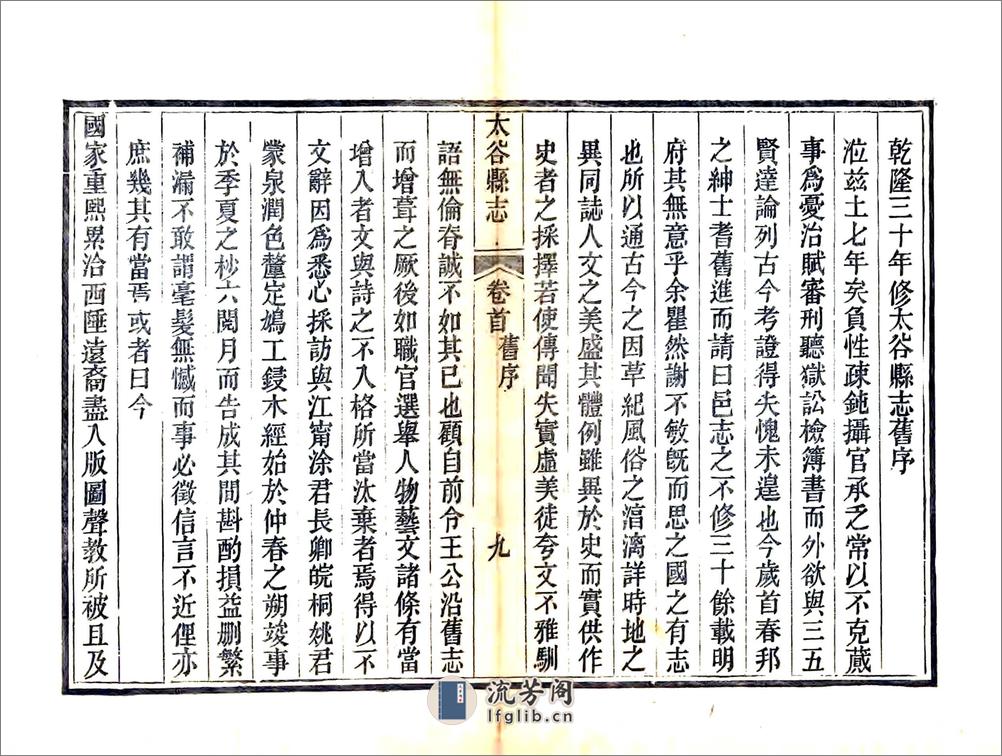 乾隆三十年修太谷縣志舊序
涖兹土七年矣負性疎鈍攝官承乏常以不克蕆
事爲憂治賦審刑聽獄訟檢簿書而外欲與三五
賢達論列古今考證得失愧未遑也今歲首春邦
之紳士耆舊進而請曰邑志之不修三十餘載明
府其無意乎余瞿然謝不敏旣而思之國之有志
也所以通古今之因革紀風俗之淳漓詳時地之
異同誌人文之美盛其體例雖異於史而實供作
史者之採擇若使傳聞失實虛美徒夸文不雅馴
太谷縣志
卷首
舊序
九
語無倫脊誠不如其已也顧自前令王公沿舊志
而增葺之厥後如職官選舉人物藝文諸條有當
增入者文與詩之不入格所當汰棄者焉得以不
文辭因爲悉心採訪與江甯涂君長卿皖桐姚君
蒙泉潤色釐定鳩工鋟木經始於仲春之朔竣事
於季夏之杪六閱月而告成其間斟酌損益删繁
補漏不敢謂毫髮無憾而事必徵信言不近俚亦
庶幾其有當焉或者曰今
國家重熙累洽西陲遠裔盡入版圖聲教所被且及
流芳阁
lfglib.cn